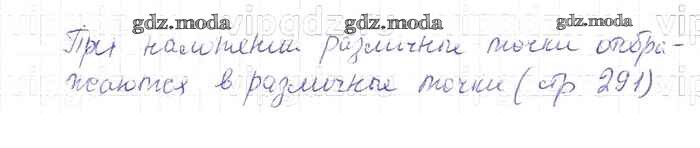 gdz.moda gdz.moda gdz.moda
При наложении различные точки отобра-
жаются в различные точки (стр 291)